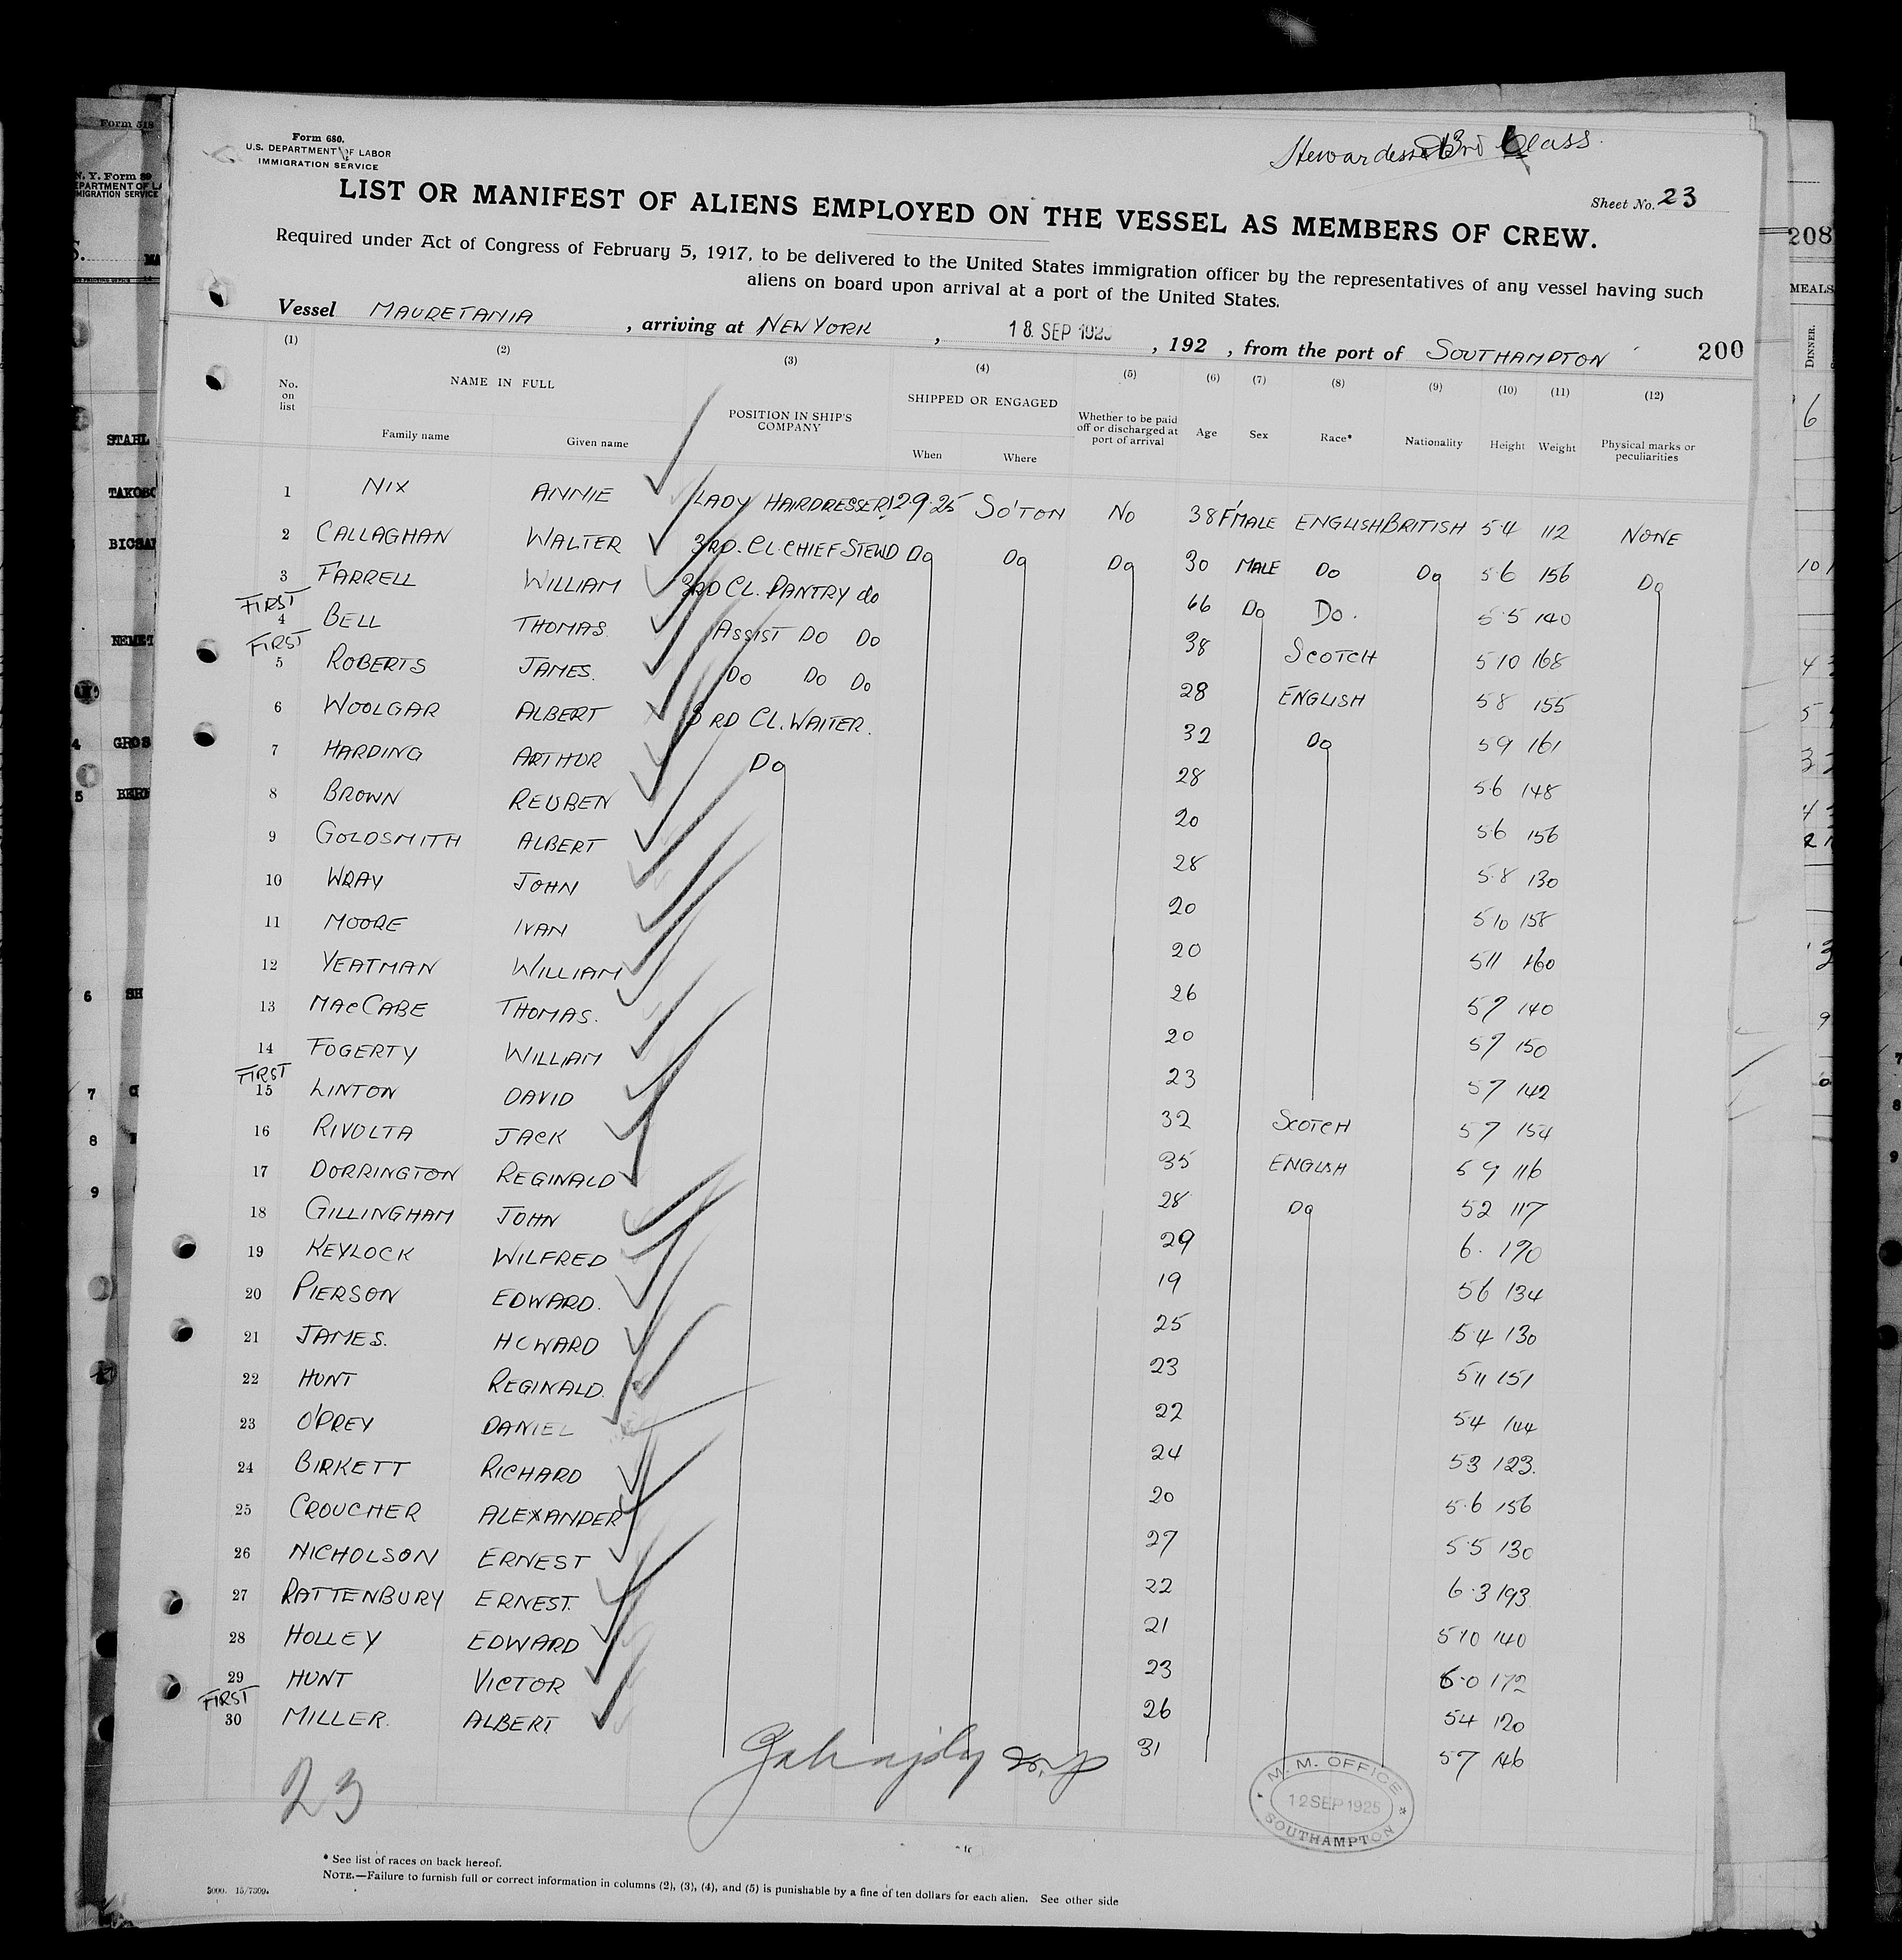 Form 680.
U.S. DEPARTMENT OF LABOR
IMMIGRATION SERVICE
3rd Class.
Sheet No. 23
LIST OR MANIFEST OF ALIENS EMPLOYED ON THE VESSEL AS MEMBERS OF CREW.
Required under Act of Congress of February 5, 1917, to be delivered to the United States immigration officer by the representatives of any vessel having such
aliens on board upon arrival at a port of the United States.
Vessel MAURETANIA , arriving at NEW YORK , 18 SEP 1925 , 192 , from the port of SOUTHAMPTON 200
(1) (2) (3) (4) (5) (6) (7) (8) (9) (10) (11) (12)
No. on list NAME IN FULL Family name Given name POSITION IN SHIP'S COMPANY SHIPPED OR ENGAGED When Where Whether to be paid off or discharged at port of arrival Age Sex Race* Nationality Height Weight Physical marks or peculiarities
1 NIX ANNIE LADY HAIRDRESSER 12·9·25 SO'TON NO 38 F'MALE ENGLISH BRITISH 5 4 112 NONE
2 CALLAGHAN WALTER 3RD. CL. CHIEF STEWD Do Do Do 30 MALE Do Do 5 6 156 Do
3 FARRELL WILLIAM 3RD CL. PANTRY do 66 Do Do. 5 5 140
FIRST
4 BELL THOMAS. ASSIST DO DO 38 SCOTCH 5 10 168
FIRST
5 ROBERTS JAMES. Do Do Do 28 ENGLISH 5 8 155
6 WOOLGAR ALBERT 3RD CL. WAITER. 32 Do 5 9 161
7 HARDING ARTHUR Do 28 5 6 148
8 BROWN REUBEN 20 5 6 156
9 GOLDSMITH ALBERT 28 5 8 130
10 WRAY JOHN 20 5 10 158
11 MOORE IVAN 20 5 11 160
12 YEATMAN WILLIAM 26 5 7 140
13 MACCABE THOMAS. 20 5 7 150
14 FOGERTY WILLIAM 23 5 7 142
FIRST
15 LINTON DAVID 32 SCOTCH 5 7 154
16 RIVOLTA JACK 35 ENGLISH 5 9 116
17 DORRINGTON REGINALD 28 Do 5 2 117
18 GILLINGHAM JOHN 29 6. 170
19 KEYLOCK WILFRED 19 5 6 134
20 PIERSON EDWARD. 25 5 4 130
21 JAMES. HOWARD 23 5 11 151
22 HUNT REGINALD. 22 5 4 144
23 O'PREY DANIEL 24 5 3 123.
24 BIRKETT RICHARD 20 5 6 156
25 CROUCHER ALEXANDER 27 5 5 130
26 NICHOLSON ERNEST 22 6·3 193
27 RATTENBURY ERNEST. 21 5 10 140
28 HOLLEY EDWARD 23 6·0 172
29 HUNT VICTOR 26 5 4 120
FIRST
30 MILLER. ALBERT 31 5 7 146
23
M. M. OFFICE
12 SEP 1925
SOUTHAMPTON
* See list of races on back hereof.
NOTE.—Failure to furnish full or correct information in columns (2), (3), (4), and (5) is punishable by a fine of ten dollars for each alien. See other side
5000. 15/7309.
Form 518
STAHL
GROS
6 SH
7
8
9
208
MEALS
DINNER.